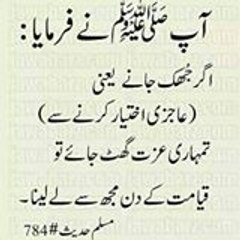 آپ ﷺ نے فرمایا:
اگر جُھک جانے یعنی
(عاجزی اختیار کرنے سے)
تمہاری عزت گھٹ جائے تو
قیامت کے دن مجھ سے لے لینا۔
مسلم حدیث#784